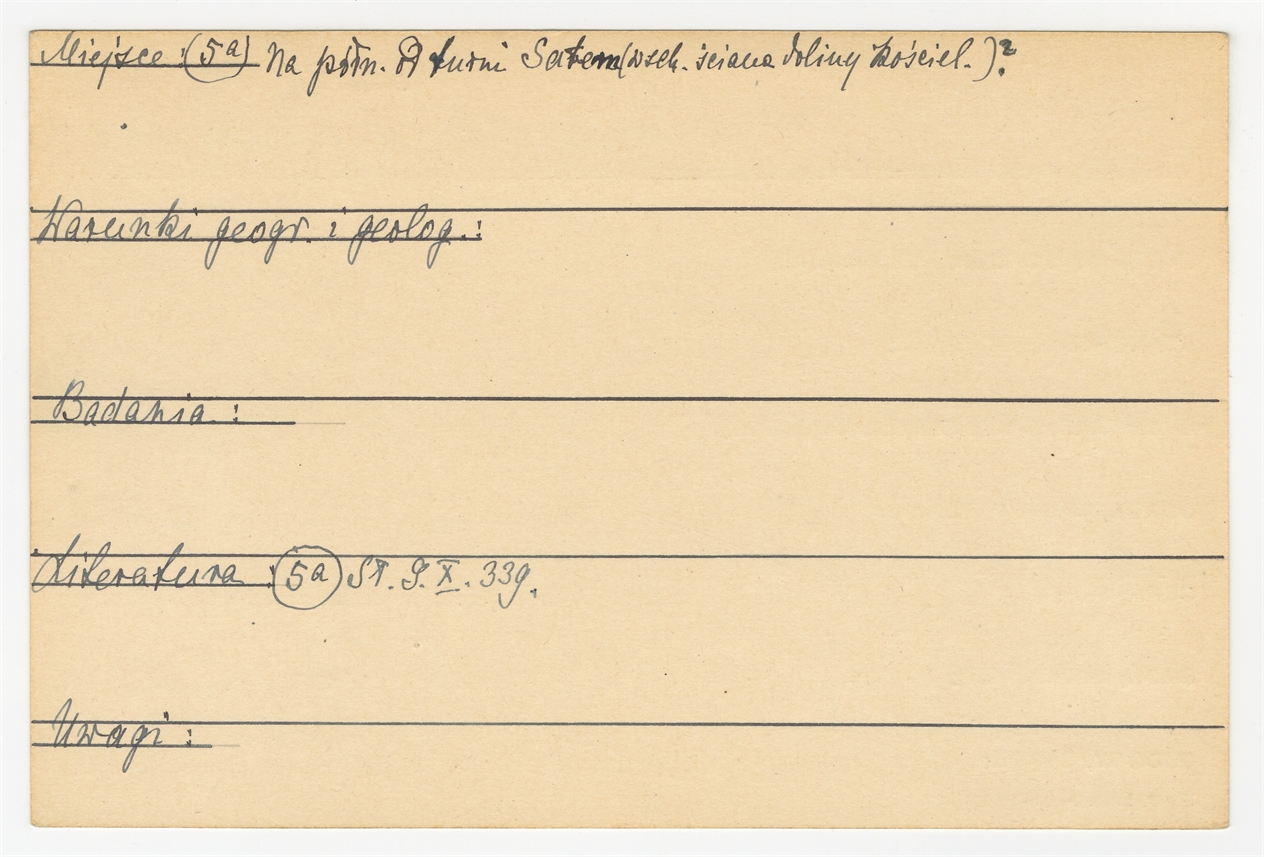 Miejsce : (5a) Na półn. od turni Satem (wsch. ściana doliny Kościel.)?
Warunki geogr. i geolog. :
Badania :
Literatura : (5a) St. G. X. 339.
Uwagi :